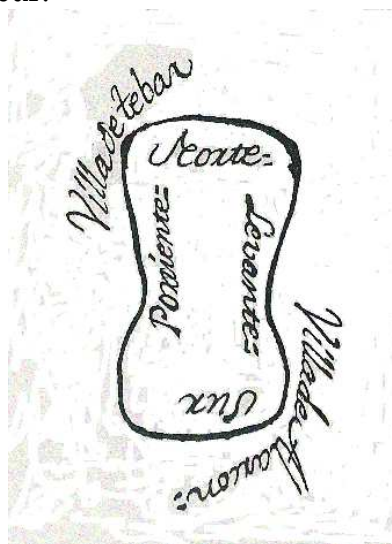 Villa de tebar
Norte=
Poniente=
Levante=
Sur
Villa de Alarcon=